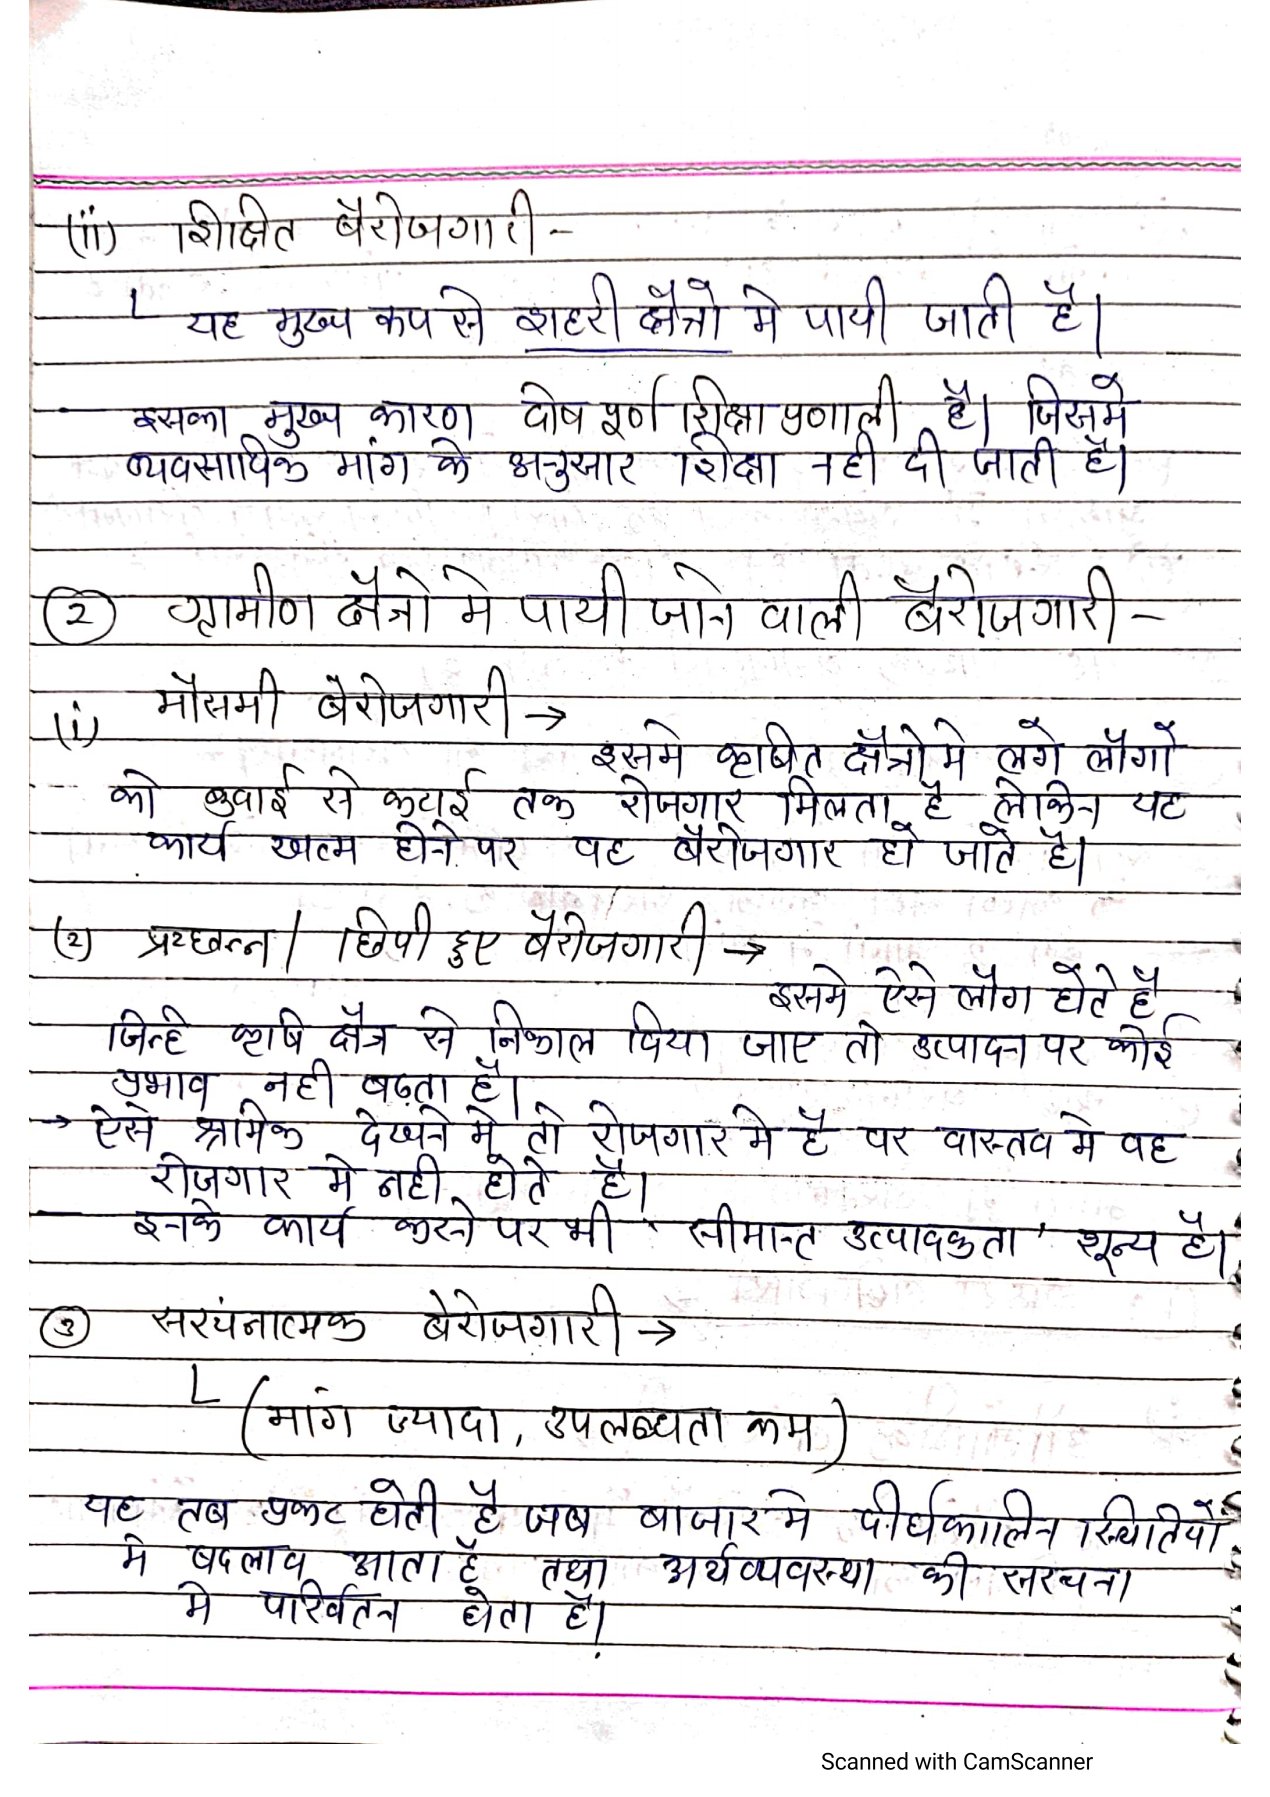 (ii) शिक्षित बैरोजगारी -
└ यह मुख्य रूप से शहरी क्षैत्रो मे पायी जाती है।
इसका मुख्य कारण दोष पूर्ण शिक्षा प्रणाली है। जिसमे
व्यवसायिक मांग के अनुसार शिक्षा नही दी जाती है।
② ग्रामीण क्षैत्रो मे पायी जाने वाली बैरोजगारी -
(i) मौसमी बैरोजगारी →
इसमे कृषित क्षैत्रो मे लगे लौगो
को बुवाई से कटाई तक रोजगार मिलता है लेकिन यह
कार्य खत्म होने पर वह बैरोजगार हो जाते है।
(२) प्रच्छन्न / छिपी हुए बैरोजगारी →
इसमे ऐसे लौग होते है
जिन्हे कृषि क्षैत्र से निकाल दिया जाए तो उत्पादन पर कोई
प्रभाव नही पढ़ता है।
→ ऐसे श्रमिक देखने मे तो रोजगार मे है पर वास्तव मे वह
रोजगार मे नही होते है।
इनके कार्य करने पर भी ' सीमान्त उत्पादकता ' शून्य है।
③ सरचंनात्मक बेरोजगारी →
└ (मांग ज्यादा, उपलब्धता कम)
यह तब प्रकट होती है जब बाजार मे दीर्घकालिन स्थितियों
मे बदलाव आता है तथा अर्थव्यवस्था की सरचना
मे परिर्वतन होता है।
Scanned with CamScanner